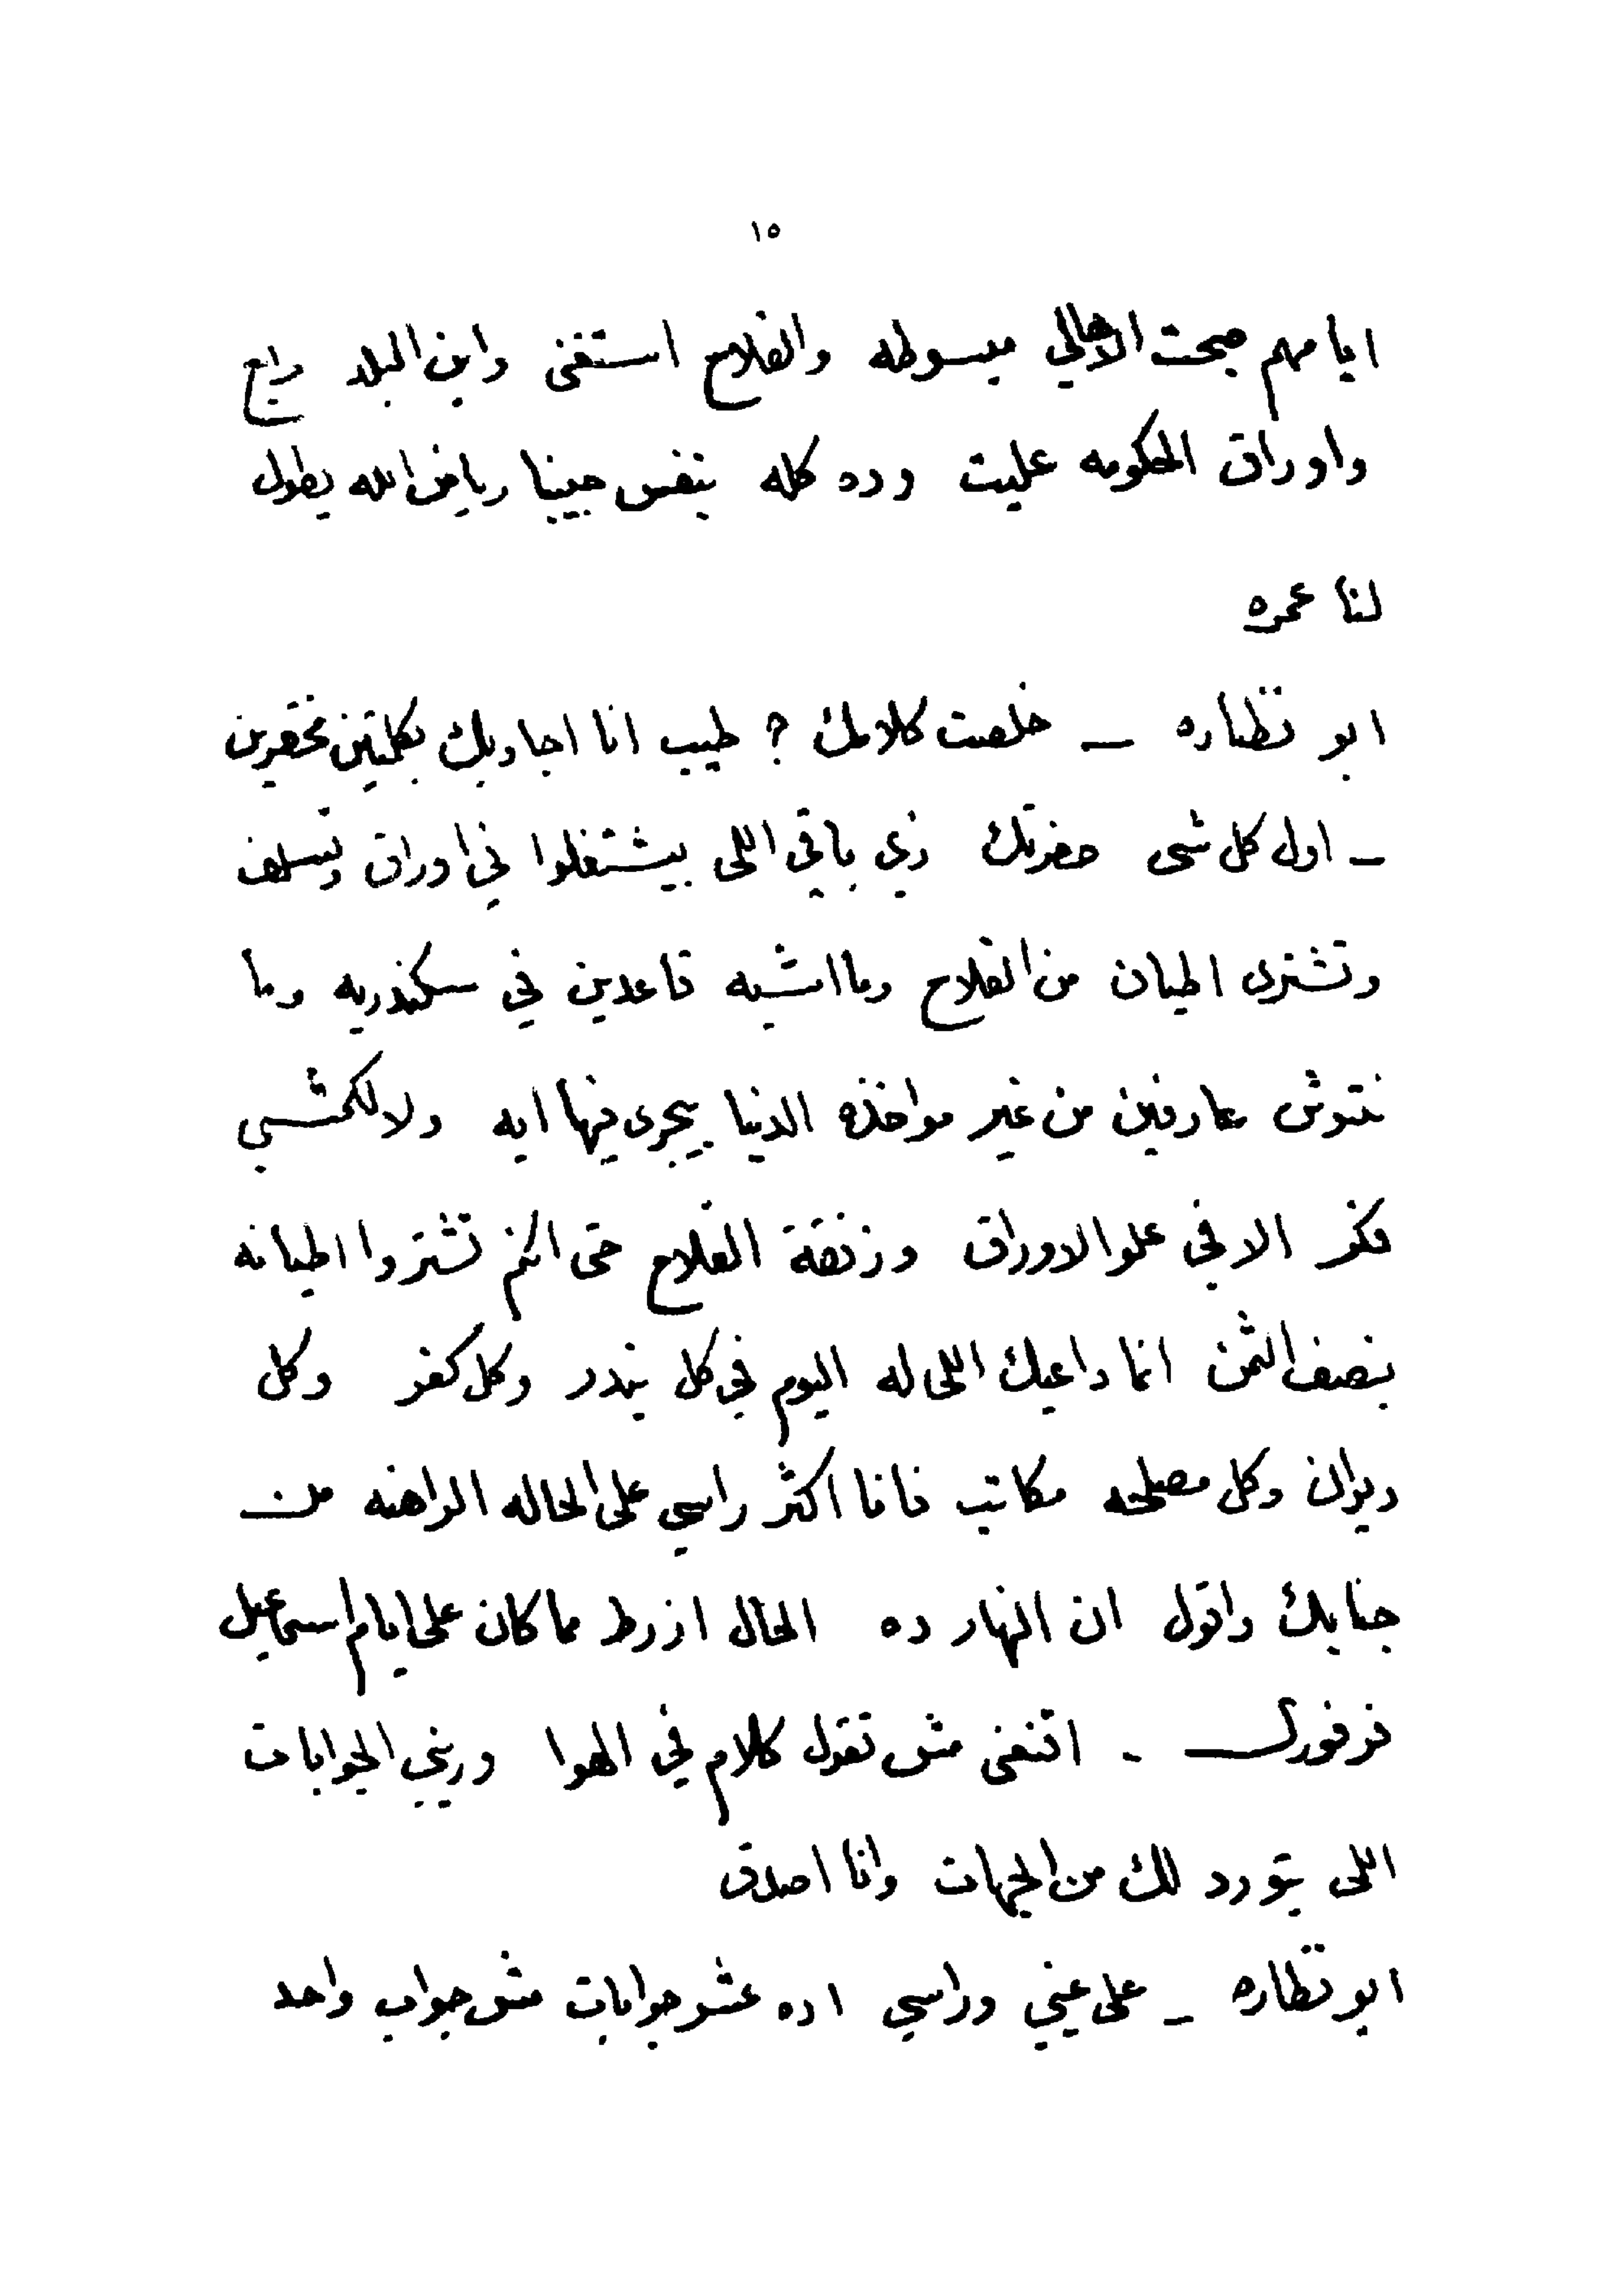 ١٥
ايامهم صبحت الاهالي مبسوطه والفلاح استغنى وابن البلد رابح
واوراق الحكومه عليت وده كله بنفس حبيبنا رياض الله يطول
لنا عمره
ابو نظاره — خلصت كلامك ? طيب انا اجاوبك بكلمتين مختصرين
— اول كل شى حضرتك زي باقي اللى بيشتغلوا في اوراق وتسلف
وتشترى اطيان من الفلاح وما اشبه قاعدين في سكندريه وما
نتوش عارفين من غير مواخذه الدنيا بيجرى فيها ايه ولا لكمشي
فكر الا في علو الاوراق وزنقة الفلاح حتى انكم تشتروا اطيانه
بنصف الثمن انما داعيك اللى له اليوم في كل بندر وكل كفر وكل
ديوان وكل مصلحه مكاتب فانا اكثر راسي على الحاله الراهنه من
جنابك واقول ان النهار ده الحال ازرط مما كان على ايام اسماعيل
فرفور — اتنغنى مش تقول كلام في الهوا وريني الجوابات
اللى بتورد لك من الجهات وانا اصدق
ابو نظاره — على عيني وراسي اده عشر جوابات مش جواب واحد